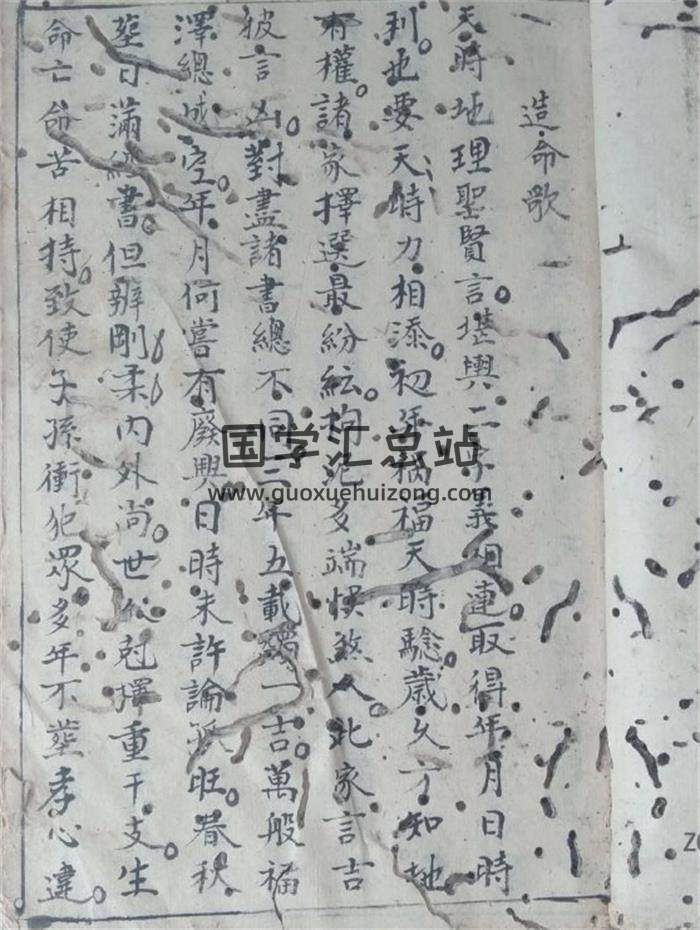 造命歌
天時地理聖賢言。堪輿二字義相連。取得年月日時
利。也要天時力相添。初年禍福天時驗。歲久方知地
有權。諸家擇選最紛紜。拘犯多端悞煞人。此家言吉
彼言凶。對盡諸書總不同。三年五載 一吉。萬般福
澤總成空。年月何嘗有廢興。日時未許論 旺。春秋
塟日滿 書。但辨剛柔內外尚。世代尅擇重干支。生
命亡命苦相持。致使子孫衝犯眾。多年不塟孝心違。
国学汇总站
www.guoxuehuizong.com